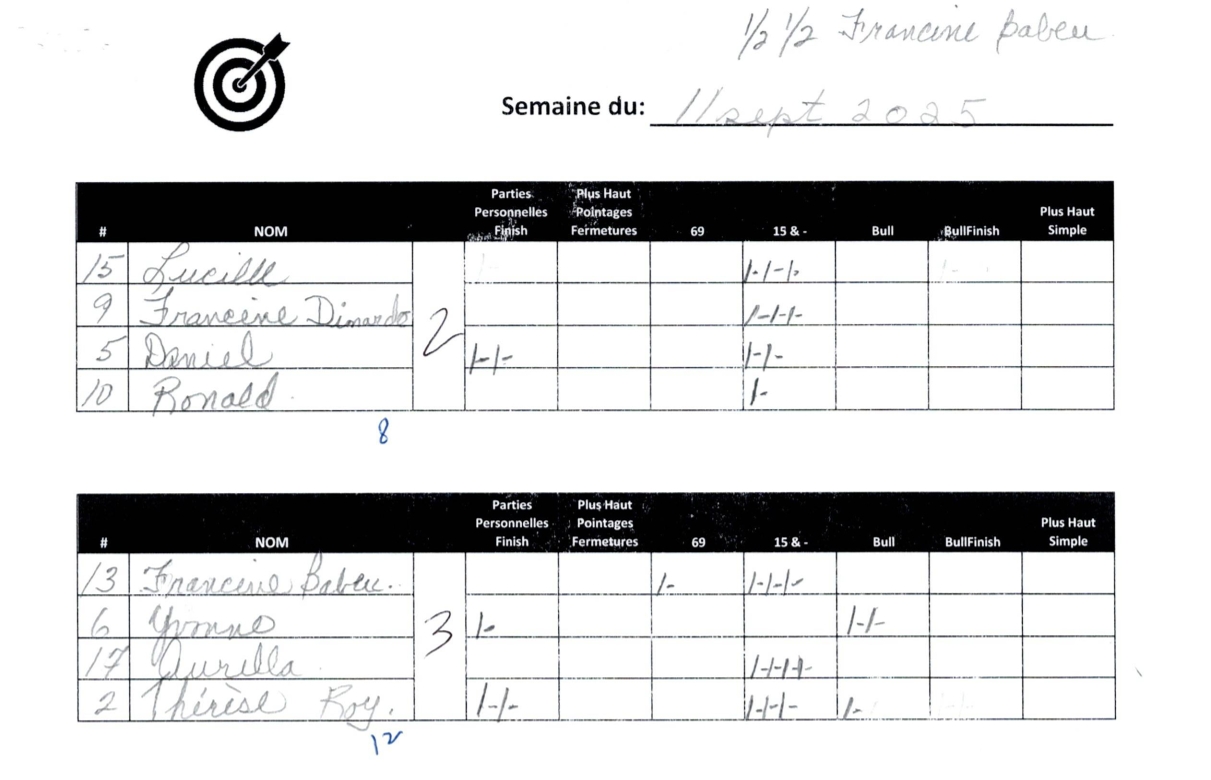 1/2 1/2 Francine Babeu
Semaine du: 11 sept 2025
# NOM Parties Personnelles Finish Plus Haut Pointages Fermetures 69 15 & - Bull BullFinish Plus Haut Simple
15 Lucille /-/-/-
9 Francine Dinardo /-/-/-
2
5 Daniel /-/- /-/-
10 Ronald /-
8
# NOM Parties Personnelles Finish Plus Haut Pointages Fermetures 69 15 & - Bull BullFinish Plus Haut Simple
13 Francine Babeu. /- /-/-/-
6 Yvonne /- /-/-
3
17 Aurella /-/-/-/-
2 Thérèse Roy. /-/- /-/-/- /-
12